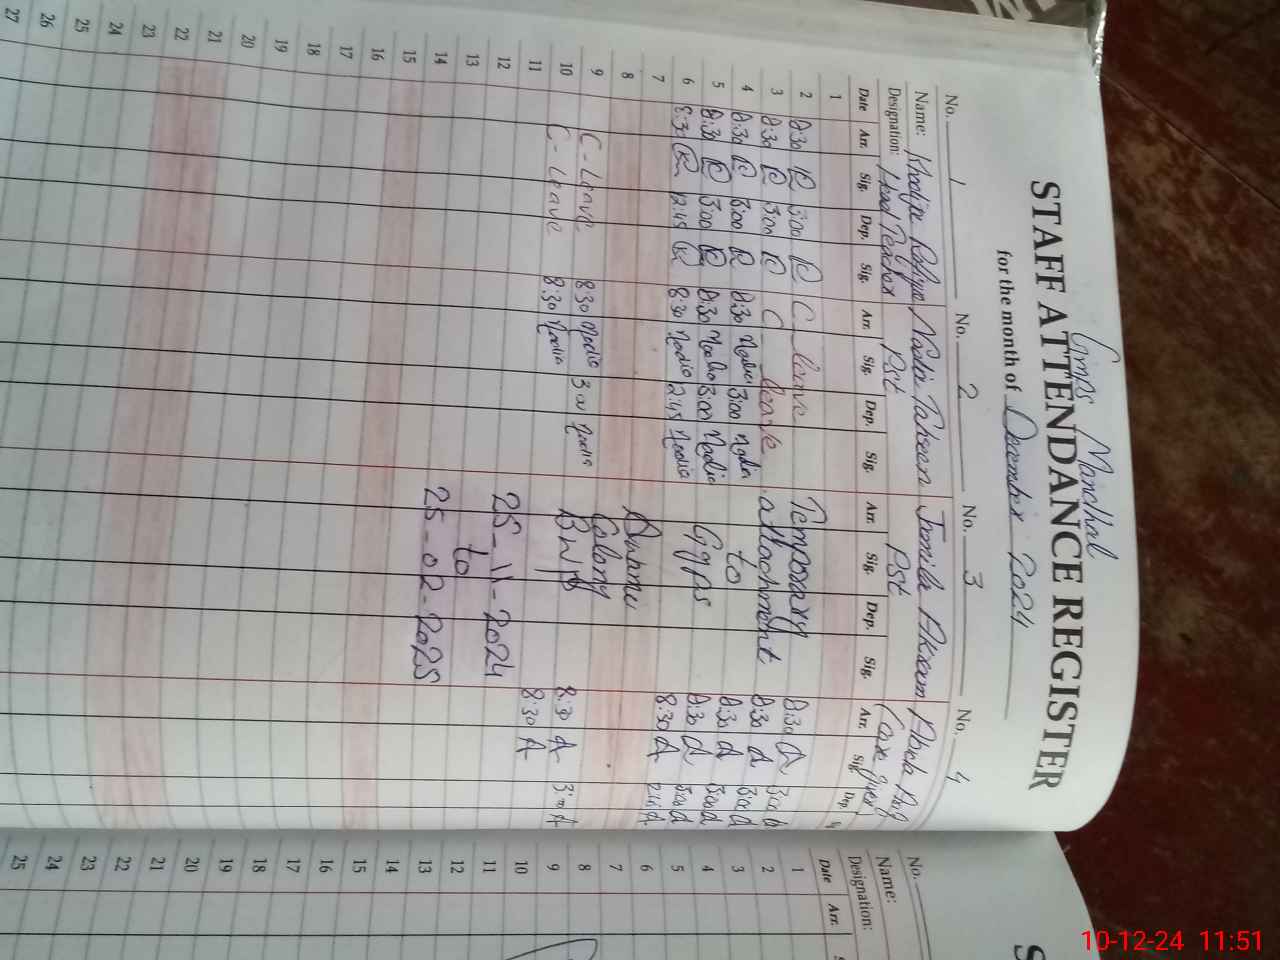 GMPS Manchal
STAFF ATTENDANCE REGISTER
for the month of December 2024
No. 1 No. 2 No. 3 No. 4
Name: Khadija Rafiqe Nadia Tahseen Jamila Akram Abida
Designation: Head Teacher PST PST Care giver
Date Arr. Sig. Dep. Sig. Arr. Sig. Dep. Sig. Arr. Sig. Dep. Sig. Arr. Sig. Dep.
1
2 8:30 3:00 C leave Temporary 8:30 A 3:00
3 8:30 3:00 C leave attachment 8:30 A 3:00 A
4 8:30 3:00 8:30 Nadia 3:00 Nadia to 8:30 A 3:00 A
5 8:30 3:00 8:30 Nadia 3:00 Nadia GGPS 8:30 A 3:00 A
6 8:30 12:45 8:30 Nadia 12:45 Nadia 8:30 A
7
8
9 C-Leave 8:30 Nadia 3:00 Nadia Colony 8:30 A 3:00 A
10 C-Leave 8:30 Nadia BWP 8:30 A
11
12 25-11-2024
13 to
14 25-02-2025
15
16
17
18
19
20
21
22
23
24
25
26
27
No.
Name:
Designation:
Date Arr.
1
2
3
4
5
6
7
8
9
10
11
12
13
14
15
16
17
18
19
20
21
22
23
24
25
10-12-24 11:51